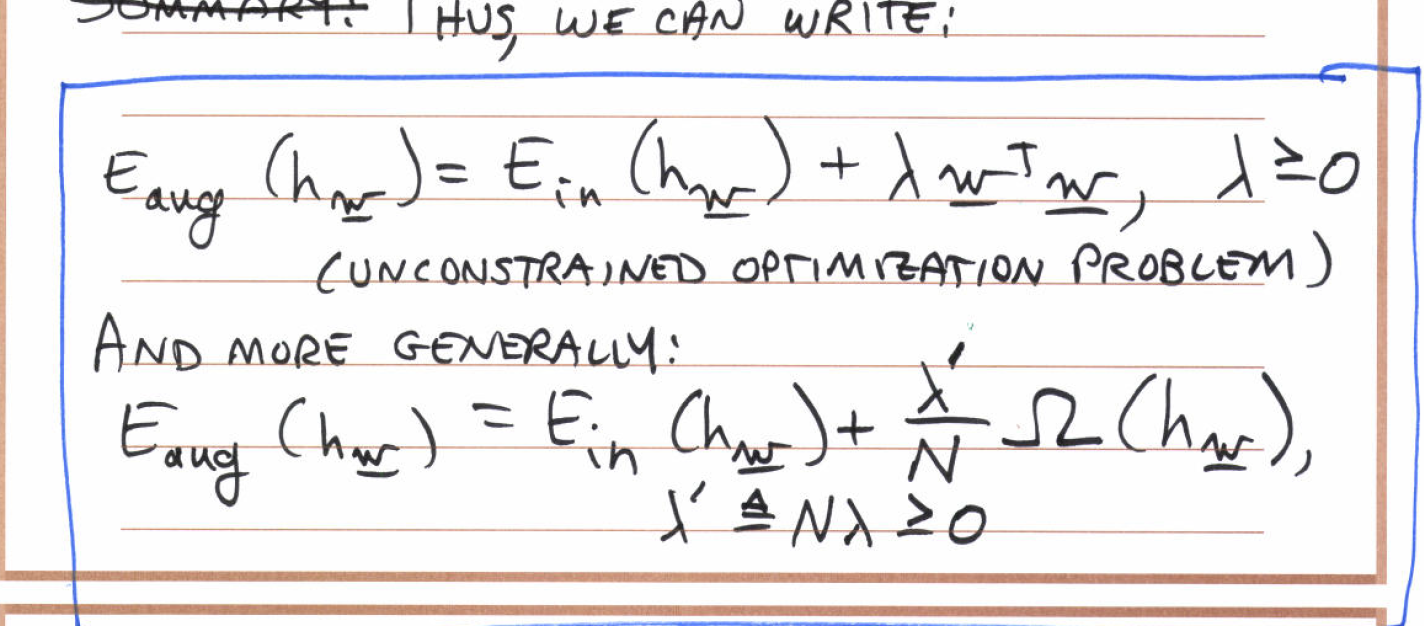 SUMMARY: THUS, WE CAN WRITE:
E_aug (h_w) = E_in (h_w) + λ w^T w, λ ≥ 0
(UNCONSTRAINED OPTIMIZATION PROBLEM)
AND MORE GENERALLY:
E_aug (h_w) = E_in (h_w) + λ'/N Ω (h_w),
λ' ≜ Nλ ≥ 0